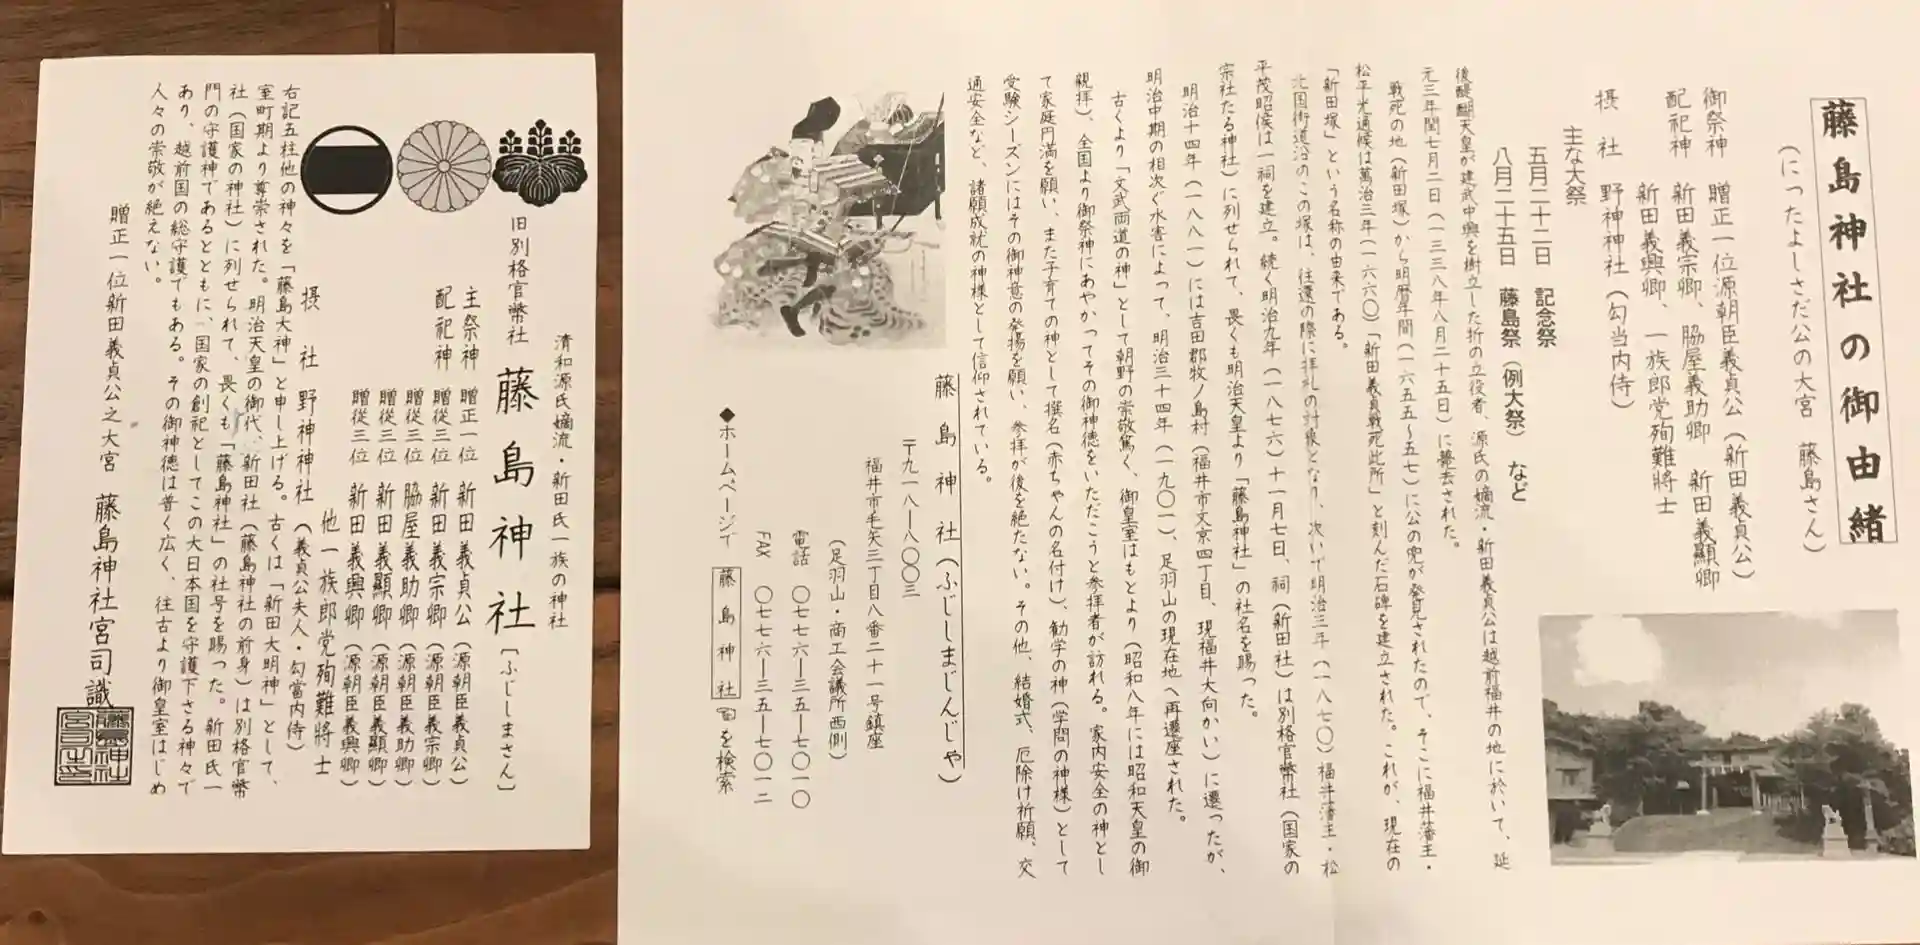 清和源氏嫡流・新田氏一族の神社
旧別格官幣社 藤島神社 [ふじしまさん]
主祭神 贈正一位 新田義貞公 (源朝臣義貞公)
配祀神 贈従三位 新田義宗卿 (源朝臣義宗卿)
贈従三位 脇屋義助卿 (源朝臣義助卿)
贈従三位 新田義顯卿 (源朝臣義顯卿)
贈従三位 新田義興卿 (源朝臣義興卿)
他一族郎党殉難將士
摂 社 野神神社 (義貞公夫人・勾當内侍)
右記五柱他の神々を「藤島大神」と申し上げる。古くは「新田大明神」として、
室町期より尊崇された。明治天皇の御代、新田社(藤島神社の前身)は別格官幣
社(国家の神社)に列せられて、畏くも「藤島神社」の社号を賜った。新田氏一
門の守護神であるとともに、国家の創祀としてこの大日本国を守護下さる神々で
あり、越前国の総守護でもある。その御神徳は普く広く、往古より御皇室はじめ
人々の崇敬が絶えない。
贈正一位新田義貞公之大宮 藤島神社宮司識
藤島神社の御由緒
(にったよしさだ公の大宮 藤島さん)
御祭神 贈正一位源朝臣義貞公(新田義貞公)
配祀神 新田義宗卿、脇屋義助卿 新田義顯卿
新田義興卿、一族郎党殉難將士
摂 社 野神神社(勾当内侍)
主な大祭
五月二十二日 記念祭
八月二十五日 藤島祭(例大祭) など
後醍醐天皇が建武中興を樹立した折の立役者、源氏の嫡流・新田義貞公は越前福井の地に於いて、延
元三年閏七月二日(一三三八年八月二十五日)に薨去された。
戦死の地(新田塚)から明暦年間(一六五五~五七)に公の兜が発見されたので、そこに福井藩主・
松平光通候は萬治三年(一六六〇)「新田義貞戦死此所」と刻んだ石碑を建立された。これが、現在の
「新田塚」という名称の由来である。
北国街道沿のこの塚は、往還の際に拝礼の対象となり、次いで明治三年(一八七〇)福井藩主・松
平茂昭候は一祠を建立。続く明治九年(一八七六)十一月七日、祠(新田社)は別格官幣社(国家の
宗社たる神社)に列せられて、畏くも明治天皇より「藤島神社」の社名を賜った。
明治十四年(一八八一)には吉田郡牧ノ島村(福井市文京四丁目、現福井大向かい)に遷ったが、
明治中期の相次ぐ水害によって、明治三十四年(一九〇一)、足羽山の現在地へ再遷座された。
古くより「文武両道の神」として朝野の崇敬篤く、御皇室はもとより(昭和八年には昭和天皇の御
親拝)、全国より御祭神にあやかってその御神徳をいただこうと参拝者が訪れる。家内安全の神とし
て家庭円満を願い、また子育ての神として撰名(赤ちゃんの名付け)、勧学の神(学問の神様)として
受験シーズンにはその御神意の発揚を願い、参拝が後を絶たない。その他、結婚式、厄除け祈願、交
通安全など、諸願成就の神様として信仰されている。
藤島神社(ふじしまじんじゃ)
〒九一八―八〇〇三
福井市毛矢三丁目八番二十一号鎮座
(足羽山・商工会議所西側)
電話 〇七七六―三五―七〇一〇
FAX 〇七七六―三五―七〇一二
◆ホームページで 藤島神社 を検索